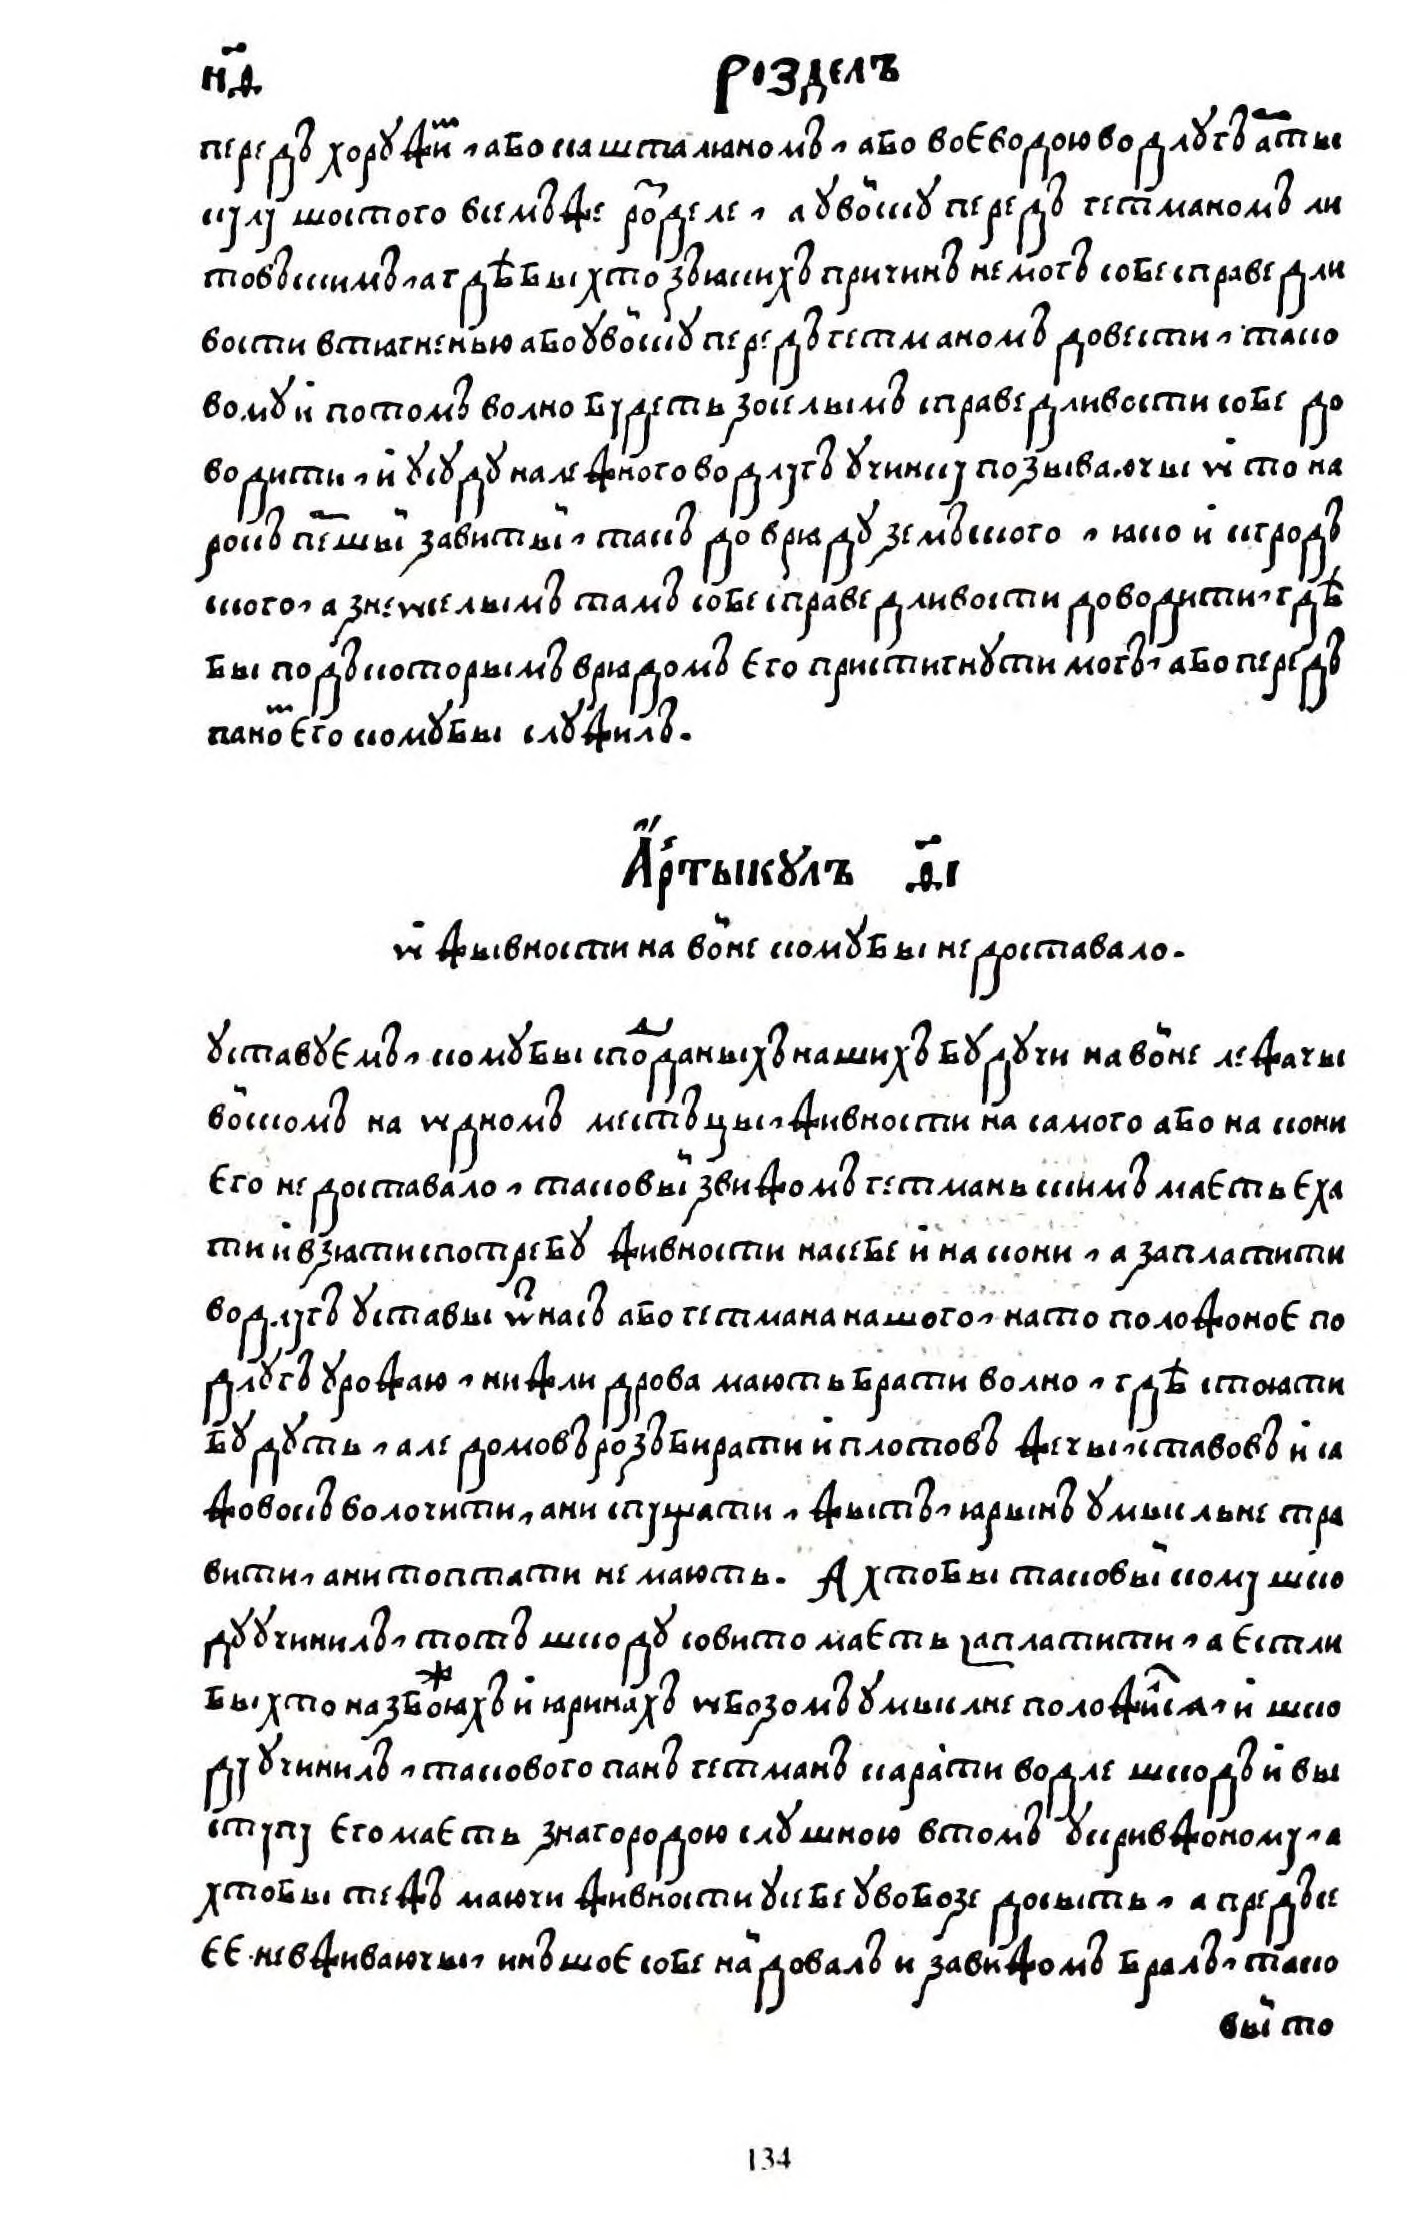 н҃д Розделъ
передъ хоружи​ⷨ, або кашталяномъ, або воеводою водлугъ а҃ты
кулу шостого въсемъже ро҃зделе, а у войску передъ гетманомъ ли
товъскимъ, а гдѣбы хто зъякихъ причинъ не могъ собе справедли
вости втягненью або у войску передъ гетманомъ довести, тако
вому и потомъ волно будеть зоселымъ справедливости собе до
водити, и у суду належного водлугъ учинку позываючы ѡ то на
рокъ пе҃шый завитый, такъ до враду земъского, яко и кгродъ
ского, а знеѡселымъ тамъ собе справедливости доводити, гдѣ
бы подъ которымъ врядомъ Его пристигнути могъ, або передъ
паноⷨ Его кому бы служилъ.
Артыкулъ д҃і
ѡ жывности на войне кому бы не доставало.
Уставуемъ, кому бы споⷣданыхъ нашихъ будучи на войне лежачы
войскомъ на ѡдномъ местъцы, живности на самого або на кони
Его не доставало, таковый звижомъ гетманьскимъ маеть Еха
ти и взяти спотребу живности на себе и на кони, а заплатити
водлугъ уставы ѿ насъ або гетмана нашого, на то положоное по
длугъ урожаю, нижли дрова мають брати волно, гдѣ стояти
будуть, але домовъ розъбирати и плотовъ жечы, ставовъ и са
жовокъ волочити, ани спущати, жытъ, ярынъ умысльне тра
вити, ани топтати не мають. А хто бы таковый кому шко
ду учинилъ, тотъ шкоду совито маеть заплатити, а Естли
бы хто на збоⷤяхъ и яринахъ ѡбозомъ умыслне положиⷧся, и шко
ду учинилъ, такового панъ гетманъ карати водле шкодъ и вы
ступу Его маеть знагородою слушною втомъ укривжоному, а
хто бы тежъ маючи живности у себе у вобозе досыть, а предъсе
ЕЕ невживаючы, инъшое собе найдовалъ и завижомъ бралъ, тако
вый то
134